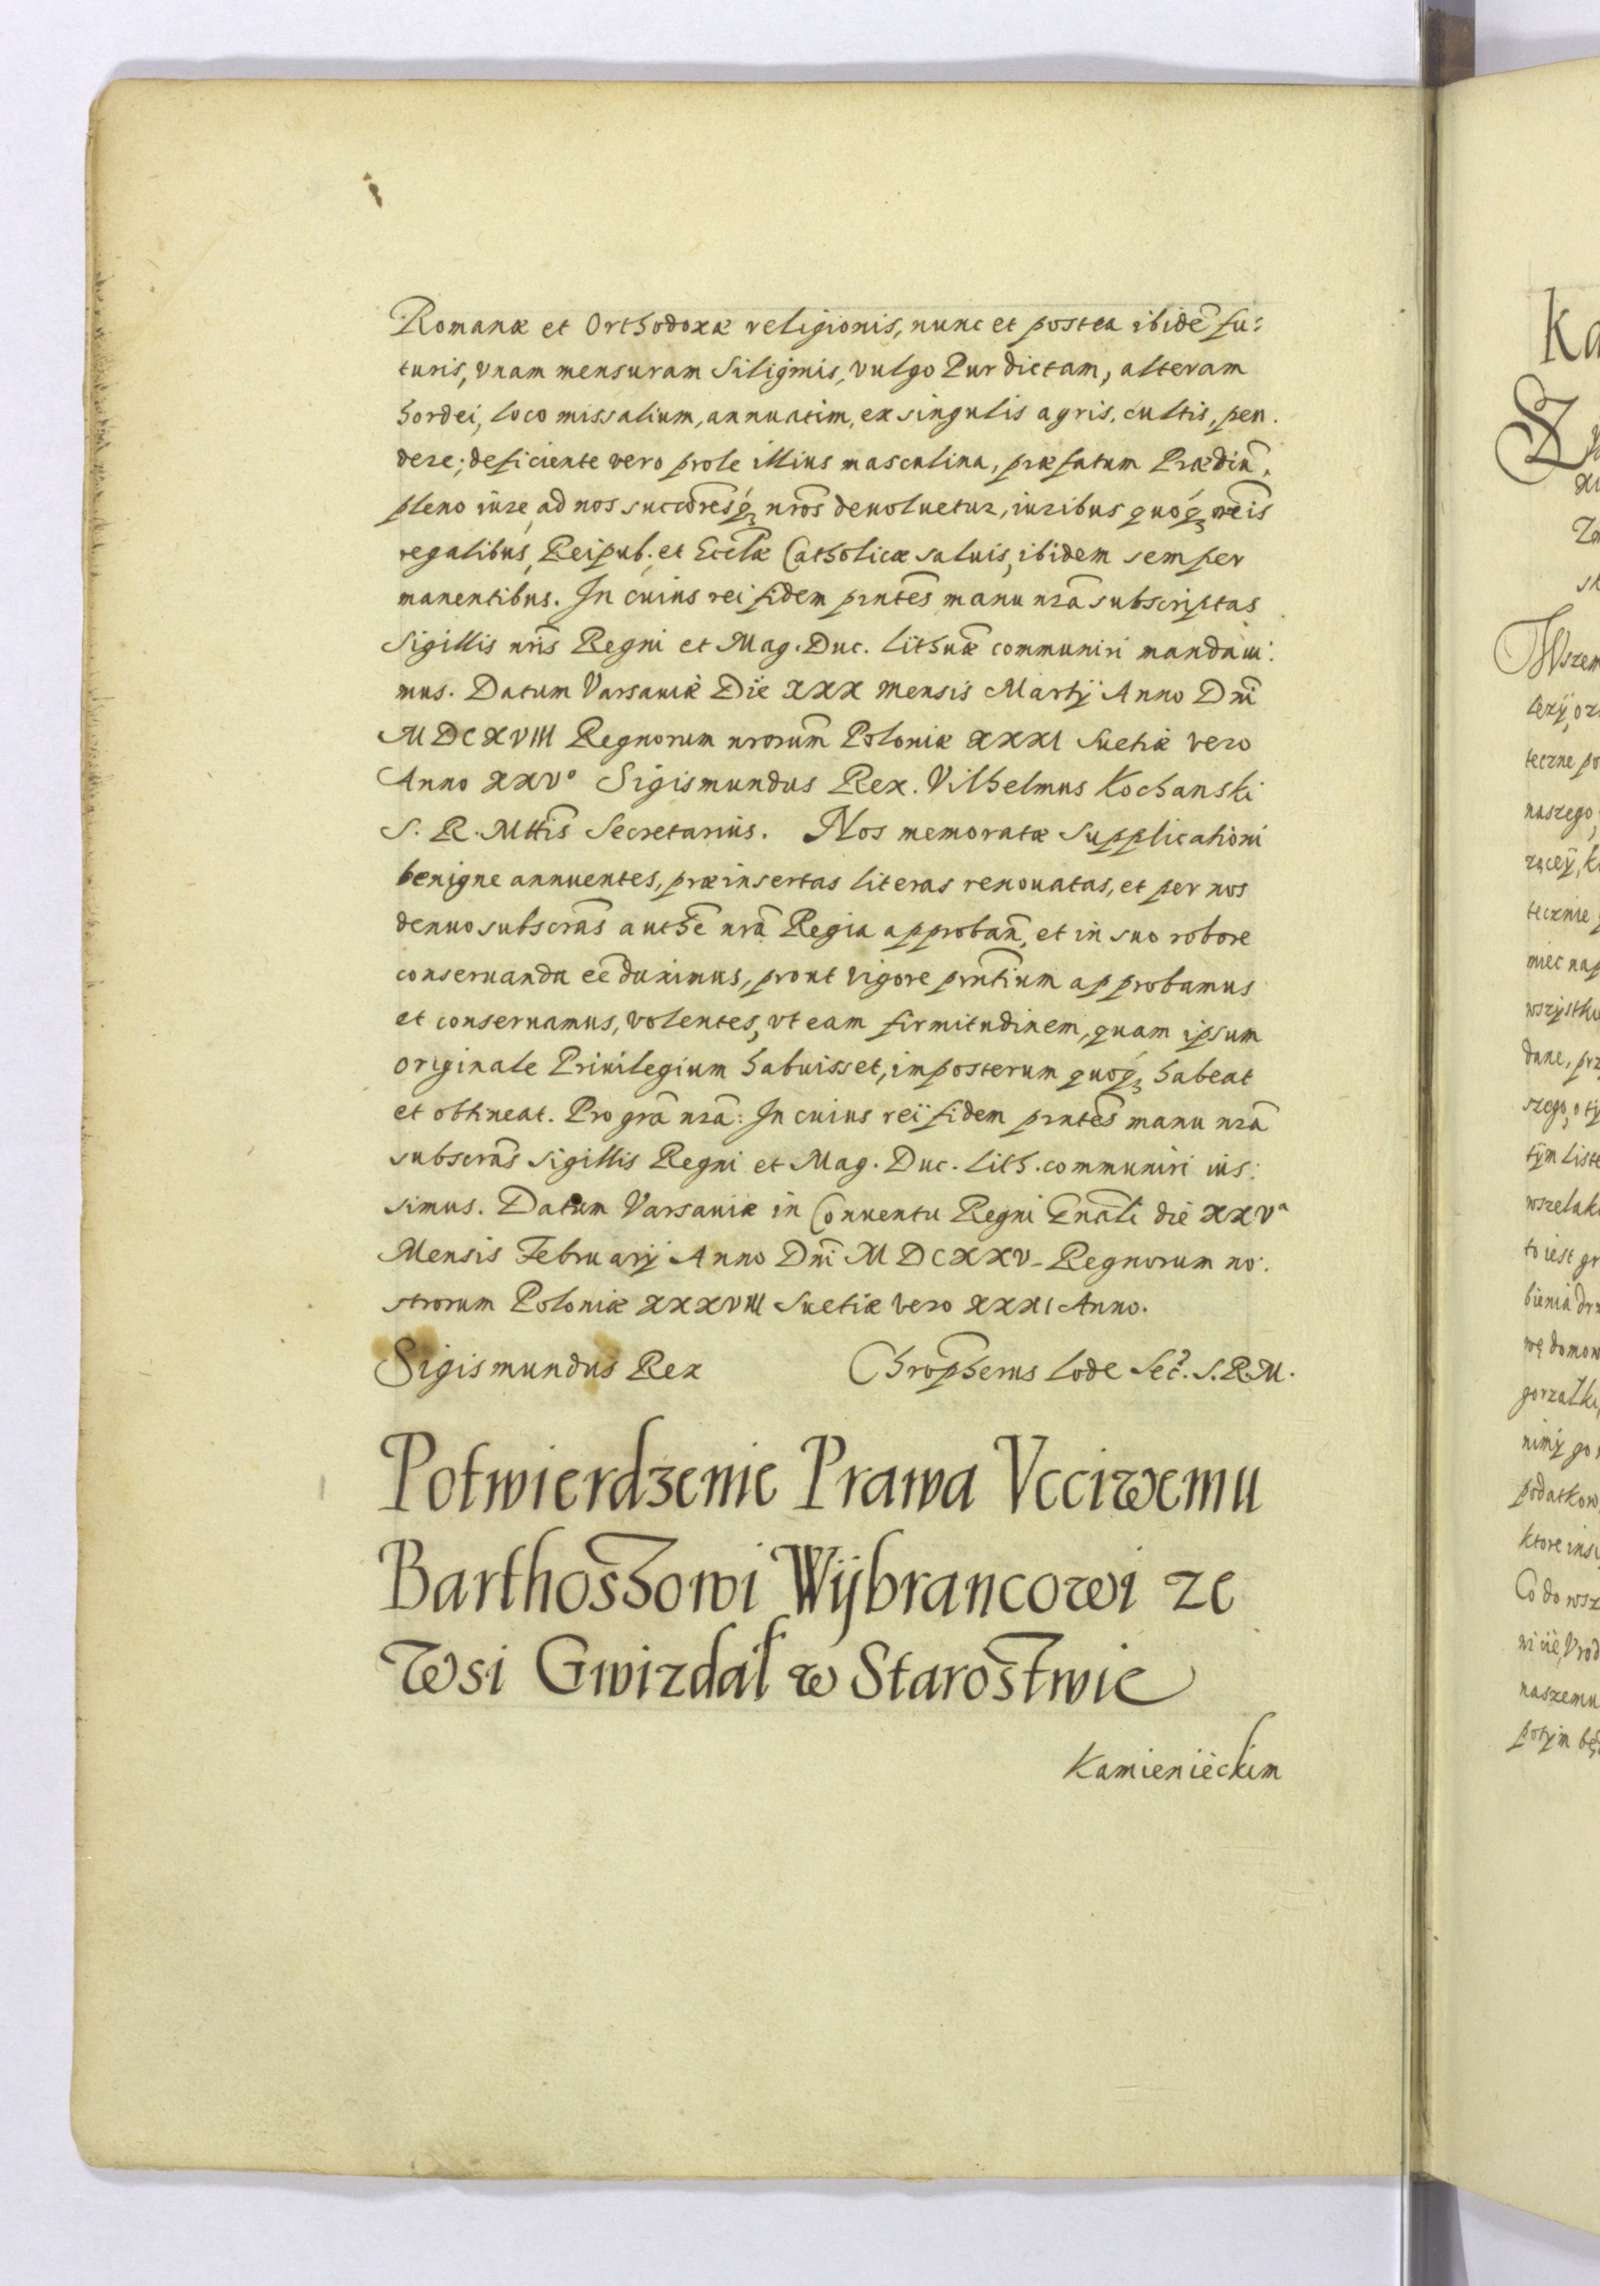 Romanæ et Orthodoxæ religionis, nunc et postea ibidē fu:
turis, vnam mensuram Siliginis, vulgo Pur dictam, alteram
hordei, loco missalium, annuatim, ex singulis agris, cultis, pen.
dere; deficiente vero prole illius masculina, præfatum Prædiū,
pleno iure, ad nos succōresq; nrōs deuoluetur, iuribus quóq;
regalibus, Reipub. et Eccłæ Catholicæ saluis, ibidem semper
manentibus. In cuius rei fidem pntēs manu nrā subscriptas
Sigillis nrīs Regni et Mag. Duc. Lithuæ communiri mandaui:
mus. Datum Varsauiæ Die XXX mensis Martÿ Anno Dnī
MDCXVIII Regnorum nrorūm Poloniæ XXXI Suetiæ vero
Anno XXVº Sigismundus Rex. Vilhelmus Kochanski
S. R. Mttīs Secretarius. Nos memoratæ Supplicationi
benigne annuentes, præinsertas literas renouatas, et per nos
denuo subscrās authē nrā Regia approbañ, et in suo robore
conseruanda eē duximus, prout vigore prntīum approbamus
et conseruamus, volentes, vt eam firmitudinem, quam ipsum
originale Priuilegium habuisset, imposterum quóq; habeat
et obtineat. Pro grā nrā: In cuius reï fidem prntēs manu nrā
subscrās sigillis Regni et Mag. Duc. Lith. communiri ius:
simus. Datum Varsauiæ in Conuentu Regni Gnāli die XXVª
Mensis Februarÿ Anno Dnī MDCXXV Regnorum no:
strorum Poloniæ XXXVIII Suetiæ vero XXXI Anno.
Sigismundus Rex Chrōpherus Lode Sec. S.R.M.
Potwierdzenie Prawa Vcciwemu
Barthoszowi Wÿbrancowi ze
Wsi Gwizdał w Starostwie
Kamienieckim